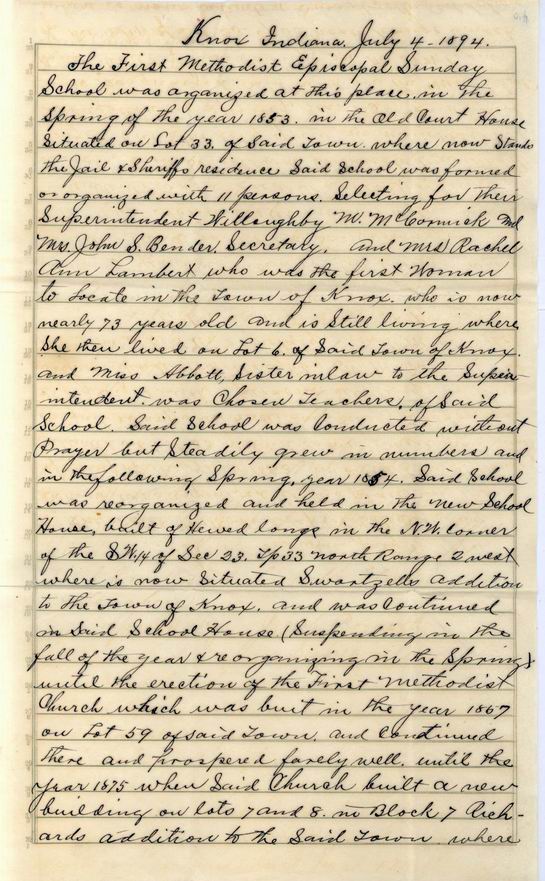 Knox Indiana. July 4 - 1894.
The First Methodist Episcopal Sunday
School was organized at this place in the
Spring of the year 1853. in the Old Court House
Situated on Lot 33. of Said Town. where now Stands
the Jail & Sheriffs residence Said School was formed
or organized with 11 persons. Selecting for their
Superintendent Willoughby M. McCormick and
Mrs. John S. Bender. Secretary. and Mrs Rachel
Ann Lambert who was the first Woman
to Locate in the Town of Knox. who is now
nearly 73 years old and is Still living where
She then lived on Lot 6. of Said Town of Knox.
and Miss Abbott, Sister inlaw to the Super-
intendent. was Chosen Teachers, of Said
School. Said School was Conducted without
Prayer but Steadily grew in numbers and
in the following Spring, year 1854. Said School
was reorganized and held in the new School
House, built of Hewed longs in the N.W. corner
of the S.W. 1/4 of Sec 23. Tp 33 north Range 2 west
where is now Situated Swartzells addition
to the Town of Knox. and was Continued
in Said School House (Suspending in the
fall of the year & reorganizing in the Spring)
until the erection of the First Methodist
Church which was buit in the year 1867
on Lot 59 of said Town. and Continued
there and prospered farely well. until the
year 1875 when Said Church built a new
building on lots 7 and 8. in Block 7 Rich-
ards addition to the Said Town. where